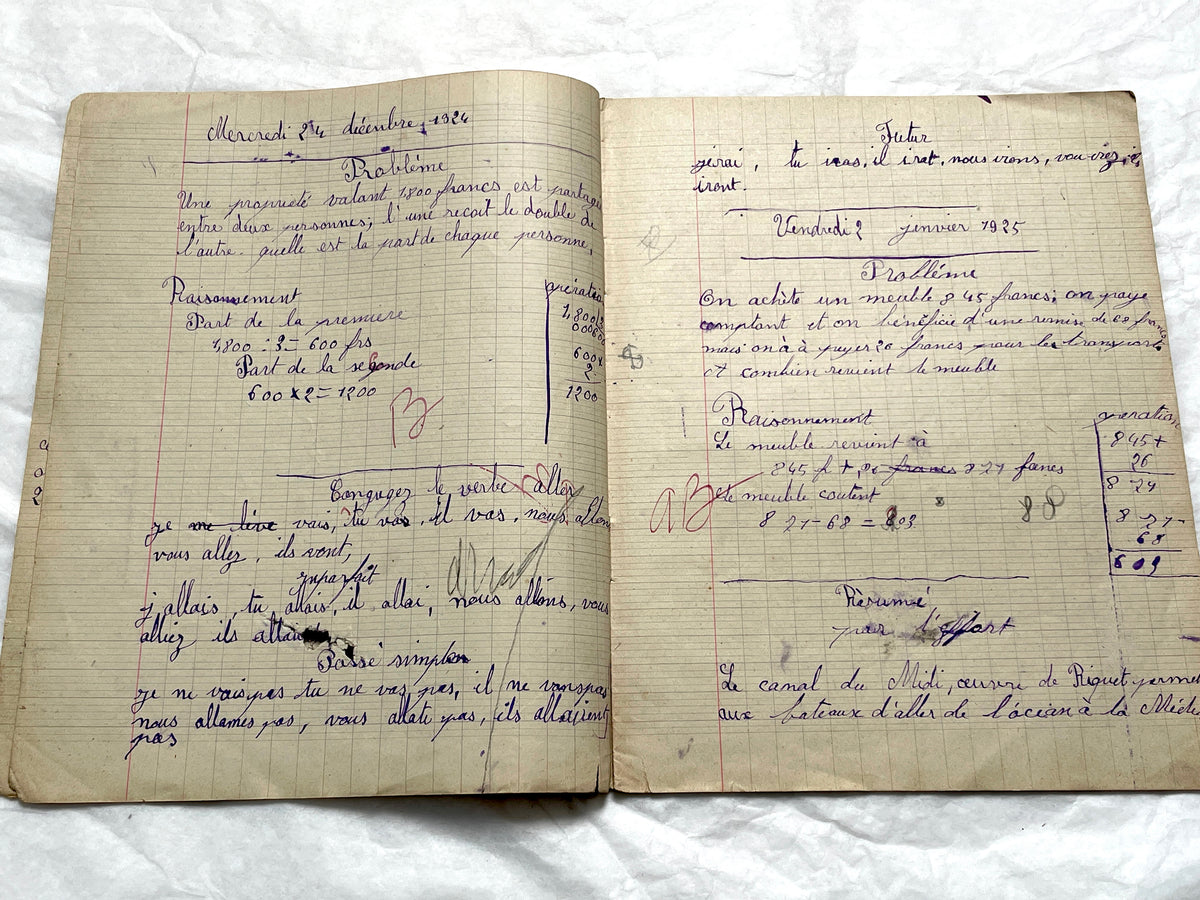 Mercredi 24 décembre 1924
Problème
Une propriété valant 1,800 francs est partagé
entre deux personnes; l'une recoit le double de
l'autre. quelle est la part de chaque personne,
Raisonnement
opération
Part de la première
1,800 : 3 = 600 frs
Part de la seconde
600 x 2 = 1200
1,800 3
000 600
600 x
2
1200
B
Congugez le verbe aller
je me lève vais, tu vas, il vas, nous allons
vous allez, ils vont,
imparfait
j'allais, tu allais, il allai, nous allons, vous
alliez ils
Passé simple
je ne vais pas tu ne vas pas, il ne vans pas
nous allames pas, vous allate pas, ils allairent
pas
Futur
j'irai, tu iras, il irat, nous irons, vou irez, i
iront.
Vendredi 2 jenvier 1925
Problème
On achète un meuble 845 francs; on paye
comptant et on bénéficie d'une remise de 68 francs
mais on à à payer 26 francs pour les transports
A combien revient le meuble
Raisonnement
opération
Le meuble revient à
845 f + 26 francs 871 francs
Le meuble coutent
871 - 68 = 803
845 +
26
871
871 -
68
AB
Résumé
par l'effort
Le canal du Midi, œuvre de Riquet permet
aux bateaux d'aller de l'océan à la Médi